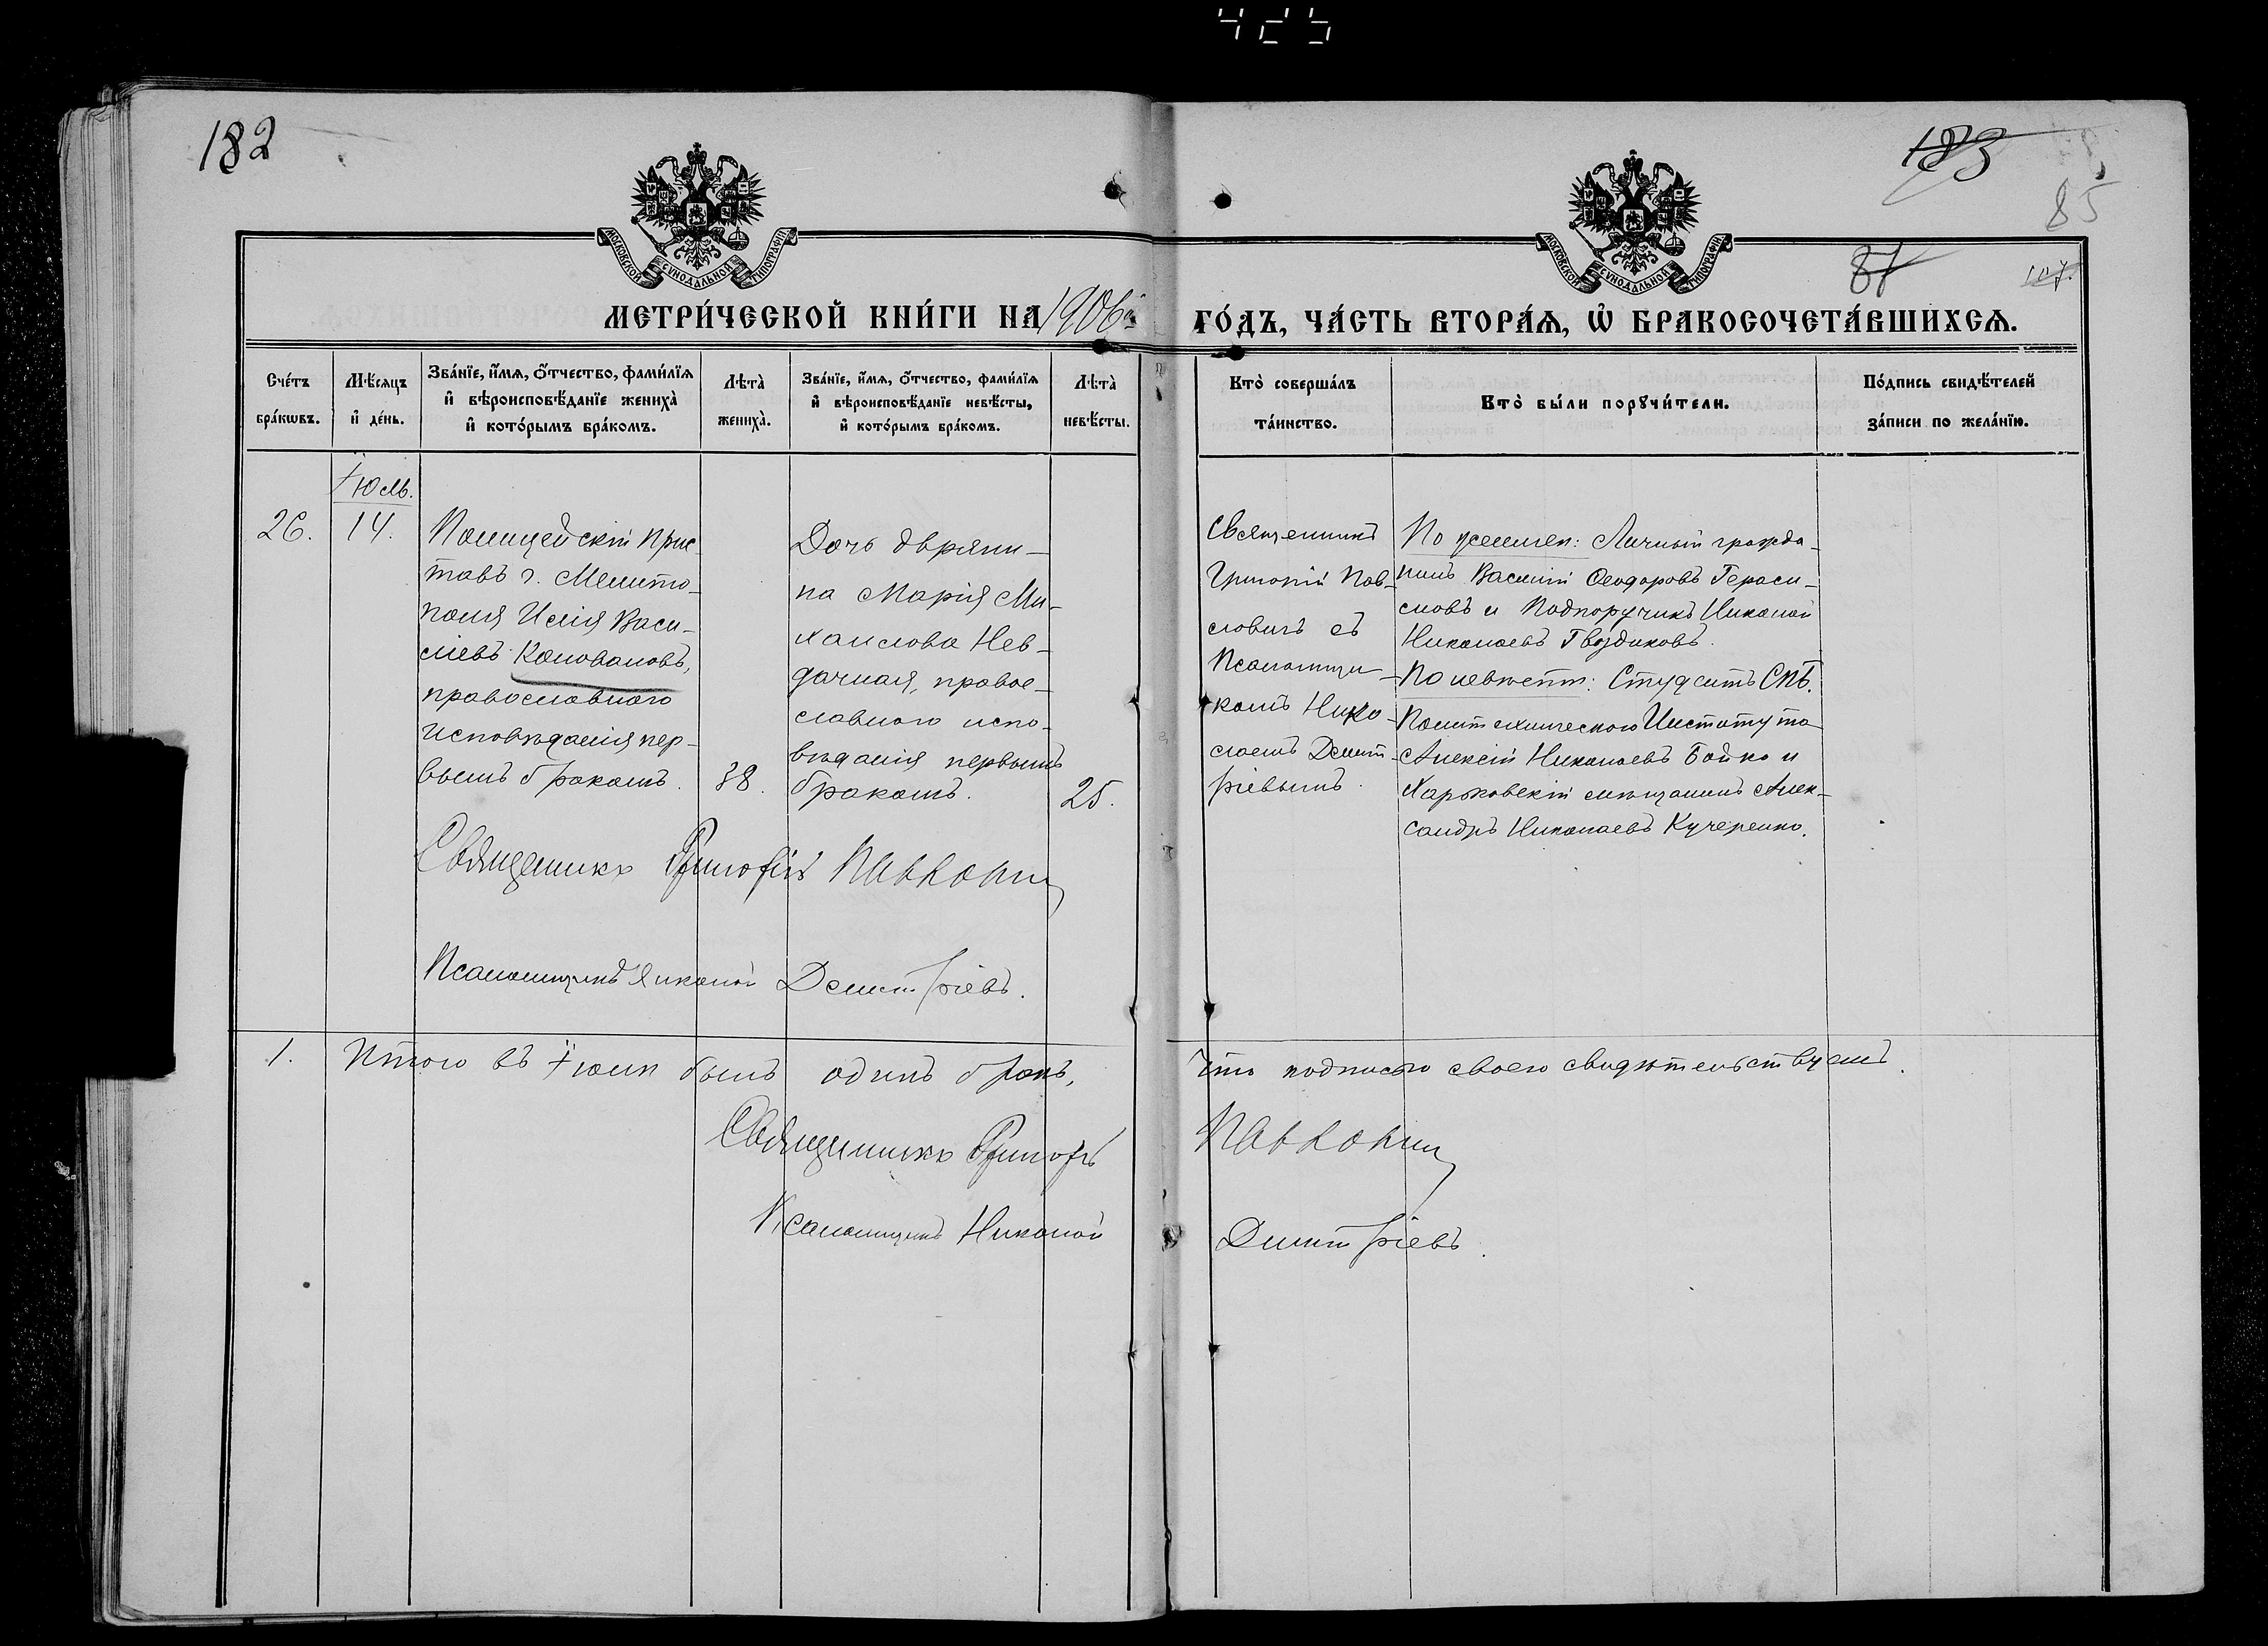 425
182
183
85
87
107.
МОСКОВСКОЙ СѴНОДАЛЬНОЙ ТИПОГРАФІИ
МОСКОВСКОЙ СѴНОДАЛЬНОЙ ТИПОГРАФІИ
МЕТРИ́ЧЕСКОЙ КНИ́ГИ НА 1906й
ГО́ДЪ, ЧА́СТЬ ВТОРА́Ѧ, Ѽ БРАКОСОЧЕТА́ВШИХСѦ.
Сче́тъ бра́кѡвъ.
Мѣ́сяцъ и҆ де́нь.
Зва́нїе, и҆́мѧ, ѻ҆́тчество, фами́лїѧ и҆ вѣроисповѣ́данїе жениха̀ и҆ кото́рымъ бра́комъ.
Лѣта̀ жениха̀.
Зва́нїе, и҆́мѧ, ѻ҆́тчество, фами́лїѧ и҆ вѣроисповѣ́данїе невѣ́сты, и҆ кото́рымъ бра́комъ.
Лѣта̀ невѣ́сты.
Кто̀ соверша́лъ та́инство.
Кто̀ бы́ли порꙋчи́тели.
По́дпись свидѣ́телей за́писи по жела́нїю.
Іюль.
26.
14.
Полицейскій прис-
тавъ г. Мелито-
поля Илія Васи-
ліевъ Коновановъ,
православнаго
исповѣданія пер-
вымъ бракомъ.
38.
Дочь дворяни-
на Марія Ми-
хаилова Нев-
дачная, правос-
лавнаго испо-
вѣданія первымъ
бракомъ.
25.
Священникъ
Григорій Пав-
ловичъ съ
Псаломщи-
комъ Нико-
лаемъ Димит-
ріевымъ.
По женихѣ: Личный гражда-
нинъ Василій Ѳеодоровъ Гераси-
мовъ и Подпоручикъ Николай
Николаевъ Гвоздиковъ.
По невѣстѣ: Студентъ СПБ.
Политехническаго Института
Алексій Николаевъ Бойко и
Харьковскій мѣщанинъ Алек-
сандръ Николаевъ Кучеренко.
Священникъ Григорій Павловичъ
Псаломщикъ Николай Димитріевъ.
1. Итого въ Іюлѣ былъ одинъ бракъ, что подписью своею свидѣтельствуемъ.
Священникъ Григорій Павловичъ
Псаломщикъ Николай Димитріевъ.